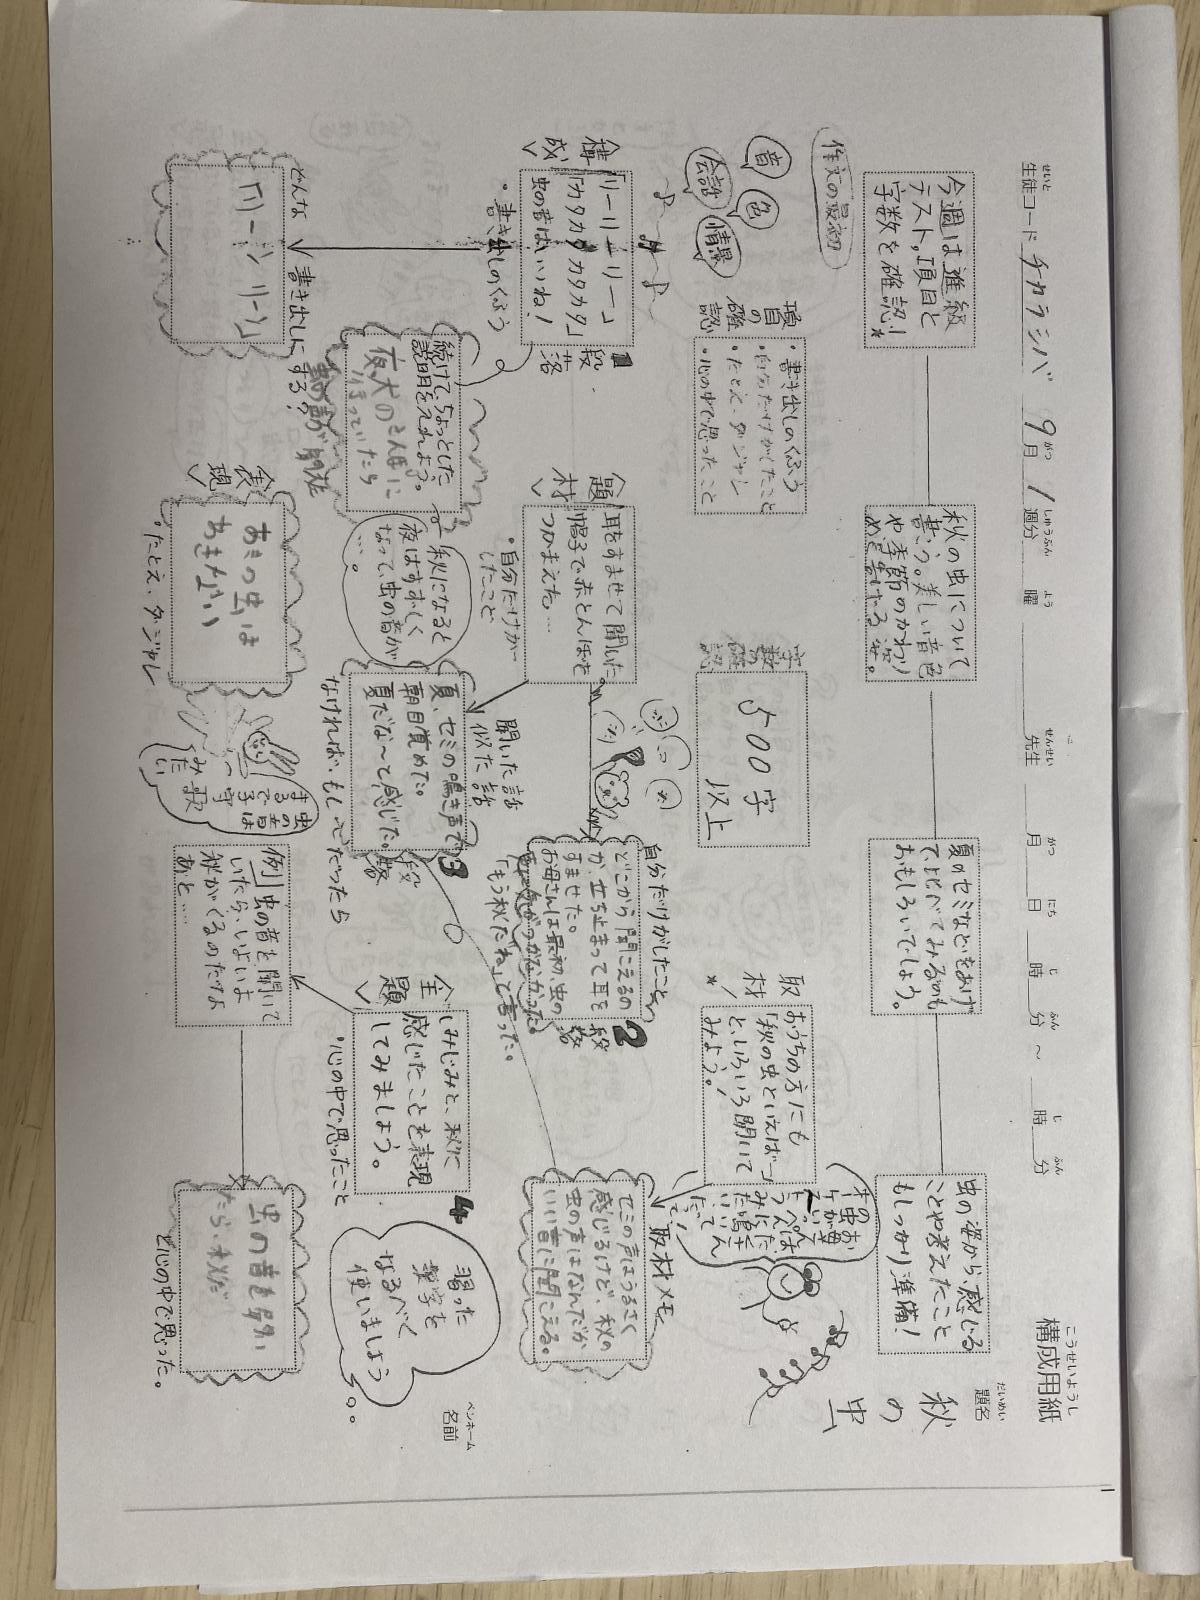 構成用紙
こうせいようし
題名
だいめい
秋の虫
生徒コード チカラシバ 9月 1週分 曜 先生 月 日 時 分 ~ 時 分
せいと がつ しゅうぶん よう せんせい がつ にち じ ふん じ ふん
ペンネーム
名前
今週は進級
テスト,項目と
字数を確認!
秋の虫について
書こう。美しい音色
や、季節のかわり
夏のセミなどをあげ
て、比べてみるのも
おもしろいでしょう。
虫の姿から、感じる
ことや考えたこと
もしっかり準備!
作文の最初
音
色
会話
情景
項目の確認
・書き出しのくふう
・自分だけがしたこと
・たとえ、ダジャレ
・心の中で思ったこと
字数の確認
500字
以上
取材
おうちの方にも
「秋の虫といえば?」
といろいろ聞いて
みよう!
取材メモ
セミの声はうるさく
感じるけど、秋の
虫の声はなんだか
いい音に聞こえる。
<構成>
「リーリーリーリー」
「カタカタ カタカタ」
虫の音はいいね!
・書き出しのくふう
1段落
<題材>
耳をすませて聞いた。
帽子で赤とんぼを
つかまえた。…
・自分だけが
したこと
自分だけがしたこと
どこから聞こえるの
か、立ち止まって耳を
すませました。
お母さんは最初、虫の
声に気がつかなかった。
「もう秋だね」と言った。
2段落
続けて、ちょっとした
説明をいれよう。
夜、犬のさんぽに
行っていたら
秋になると
夜はすずしく
なって、虫の音が
…。
聞いた話
似た話
夏、セミの鳴き声で
朝目覚めた。
夏だな〜と感じた。
なければ、もし〜だったら
3段落
<主題>
しみじみと、秋に
感じたことを表現
してみましょう。
・心の中で思ったこと
4
習った
漢字を
なるべく
使いましょう
どんな書き出しにする?
「リーンリーン」
<表現>
あきの虫は
あきない
・たとえ、ダジャレ
虫の音は
まるで子守
歌みたい
例 虫の音を聞いて
いたら、いよいよ
秋がくるのだなあ
と……
と心の中で思った。